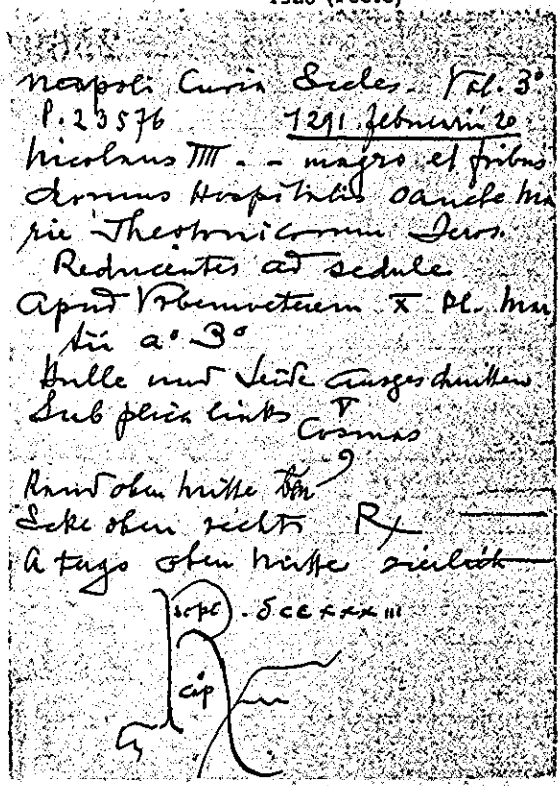 Neapoli Curia Sicles. Vol. 3°
P. 23576 1291 februarii 20
Nicolaus IIII - - magro et fribus
domus Hospitalis Sancte Ma
rie Theotonicorum Ieros.
Reducentes ad sedule
apud Vrbemveterem X kl. Mar
tii a° 3°
Bulle und Seide ausgeschnitten
Sub plica links
Cosmas
Rand oben Mitte
Ecke oben rechts R
A tergo oben Mitte zierlich
script . dcexxxiii
cap